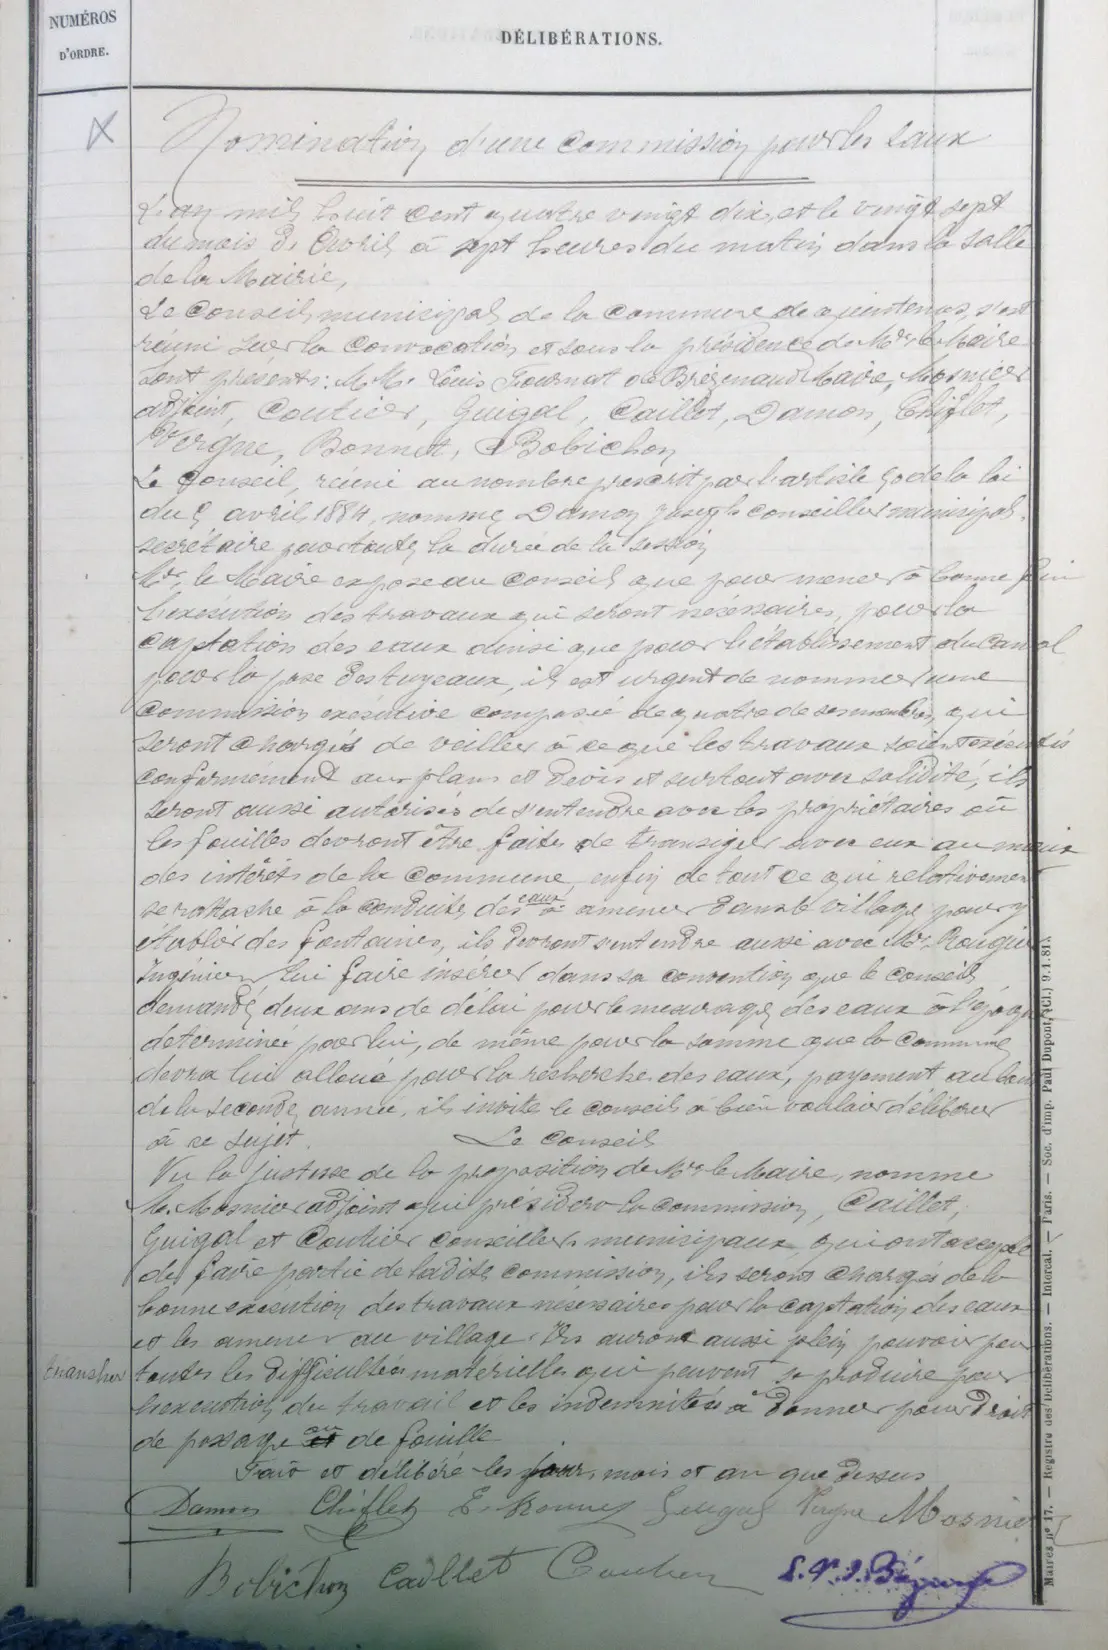 NUMÉROS
D'ORDRE.
DÉLIBÉRATIONS.
X
Nomination d'une commission pour les eaux
L'an mil huit cent quatre vingt dix, et le vingt sept
du mois de Avril à sept heures du matin dans la salle
de la Mairie,
Le Conseil municipal de la Commune de quintenas, s'est
réuni sur la convocation et sous la présidence de Mr. le Maire
Sont présents: M.M. Louis Fournat de Brézenaud Maire, Mosnier
adjoint, Coutier, Guigal, Caillet, Damon, Chiflet,
Vergne, Bonnet, Bobichon
Le Conseil, réuni au nombre prescrit par l'article 50 de la loi
du 5 avril 1884, nomme Damon Joseph conseiller municipal,
secrétaire pour toute la durée de la session
Mr. le Maire expose au Conseil que pour mener à bonne fin
l'exécution des travaux qui seront nécessaires, pour la
captation des eaux ainsi que pour l'établissement du canal
pour la pose des tuyeaux, il est urgent de nommer une
Commission exécutive composée de quatre de ses membres, qui
seront chargés de veiller à ce que les travaux soient exécutés
conformément aux plans et devis et surtout avec solidité, ils
seront aussi autorisés de s'entendre avec les propriétaires où
les fouilles devront être faites de transiger avec eux au mieux
des intérêts de la Commune, enfin de tout ce qui relativement
se rattache à la conduite des eaux à amener dans le village pour y
établir des fontaines, ils devront s'entendre aussi avec Mr. Rougier
Ingénieur, lui faire insérer dans sa convention que le conseil
demande deux ans de délai pour le mesurage des eaux à l'époque
déterminée par lui, de même pour la somme que la Commune
devra lui alloué pour la recherche des eaux, payement au bout
de la seconde année, ils invite le conseil à bien vouloir délibérer
à ce sujet. Le Conseil
Vu la justesse de la proposition de Mr. le Maire, nomme
M. Mosnier adjoint qui présidera la commission, Caillet,
Guigal et Coutier conseillers municipaux, qui ont accepté
de faire partie de ladite commission, ils seront chargés de la
bonne exécution des travaux nécessaires pour la captation des eaux
et les amener au village. Ils auront aussi plein pouvoir pour
trancher toutes les difficultées matérielles qui peuvent se produire pour
l'exécution du travail et les indemnitées à donner pour droit
de passage ou de fouille
Fait et délibéré les jour, mois et an que dessus
Damon Chiflet E. Bonnet Guigal Vergne Mosnier
Bobichon Caillet Coutier
Maires nº 17. — Registre des Délibérations. — Intercal. — Paris. — Soc. d'imp. Paul Dupont, (Cl.) 9.1.81.